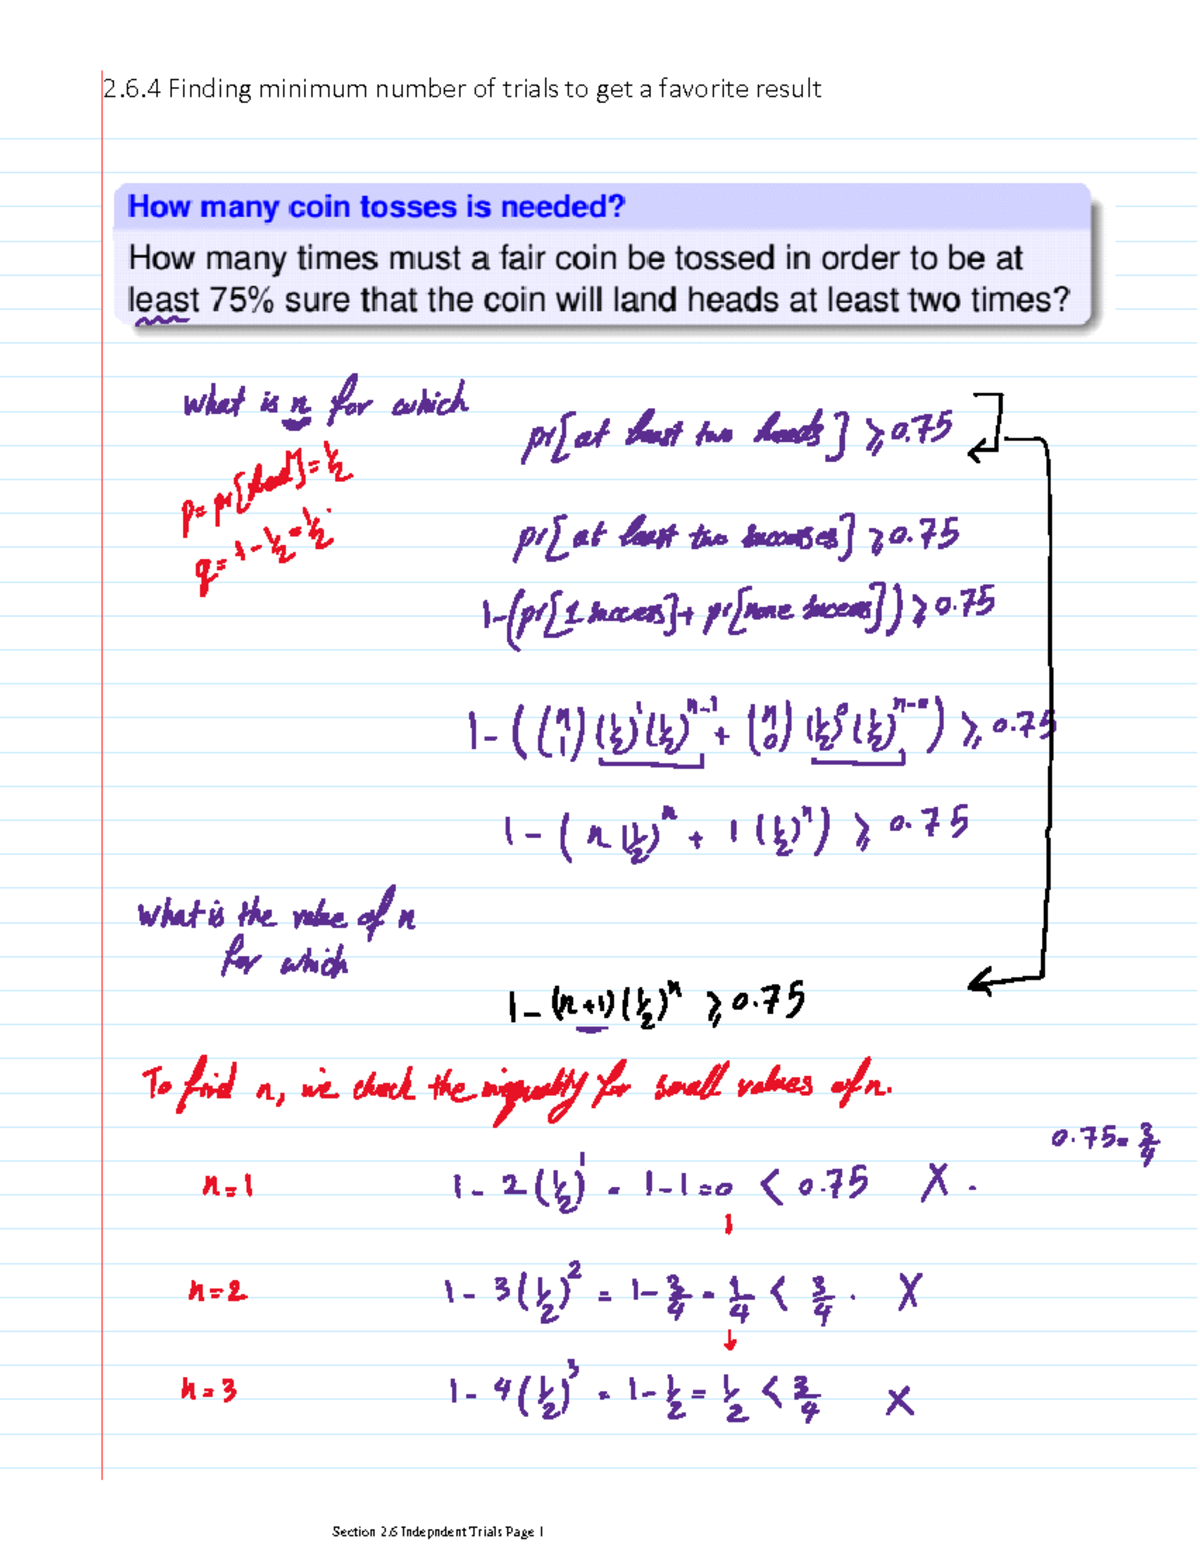 2.6.4 Finding minimum number of trials to get a favorite result
How many coin tosses is needed?
How many times must a fair coin be tossed in order to be at
least 75% sure that the coin will land heads at least two times?
What is n for which
pr[at least two heads] ⩾ 0.75
p = pr[head] = 1/2
q = 1 - 1/2 = 1/2.
pr[at least two successes] ⩾ 0.75
1-(pr[1 success] + pr[none success]) ⩾ 0.75
1 - ( (n 1) (1/2)^1 (1/2)^n-1 + (n 0) (1/2)^0 (1/2)^n-0 ) ⩾ 0.75
1 - ( n (1/2)^n + 1 (1/2)^n ) ⩾ 0.75
What is the value of n
for which
1 - (n+1) (1/2)^n ⩾ 0.75
To find n, we check the inequality for small values of n.
0.75 = 3/4
n = 1 1 - 2 (1/2)^1 = 1 - 1 = 0 < 0.75 X .
n = 2 1 - 3 (1/2)^2 = 1 - 3/4 = 1/4 < 3/4 . X
n = 3 1 - 4 (1/2)^3 = 1 - 1/2 = 1/2 < 3/4 X
Section 2.6 Indepndent Trials Page 1